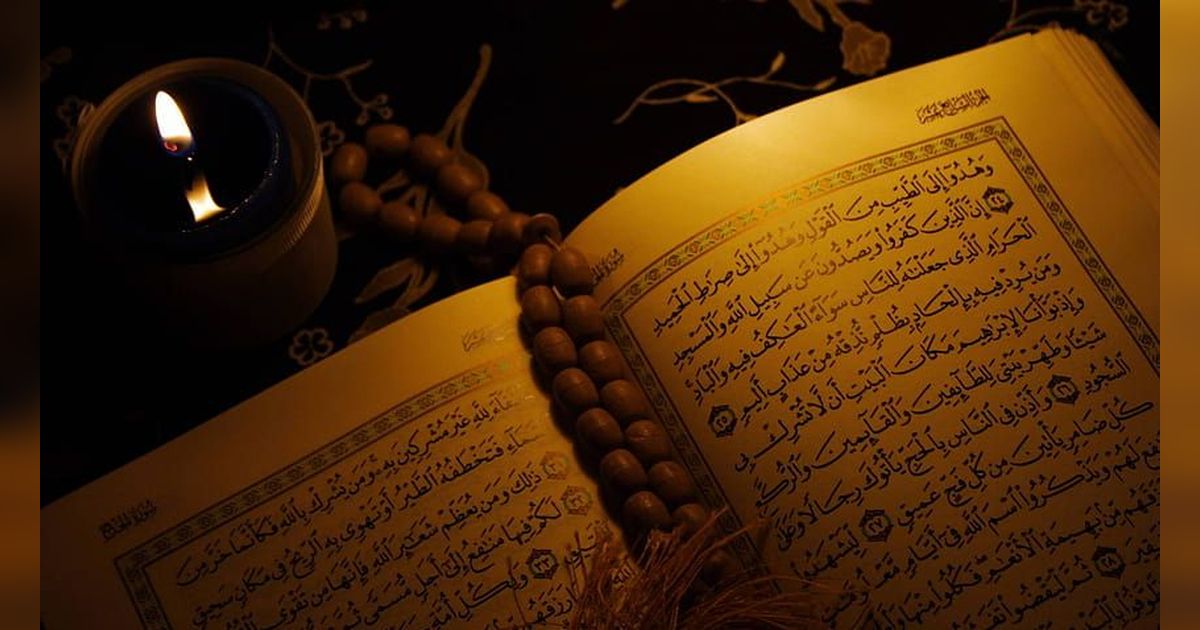 الجزء السابع عشر
وَهُدُوٓا۟ إِلَى ٱلطَّيِّبِ مِنَ ٱلْقَوْلِ وَهُدُوٓا۟ إِلَىٰ صِرَٰطِ ٱلْحَمِيدِ
٢٤ إِنَّ ٱلَّذِينَ كَفَرُوا۟ وَيَصُدُّونَ عَن سَبِيلِ ٱللَّهِ وَٱلْمَسْجِدِ
ٱلْحَرَامِ ٱلَّذِى جَعَلْنَٰهُ لِلنَّاسِ سَوَآءً ٱلْعَٰكِفُ فِيهِ وَٱلْبَادِ
وَمَن يُرِدْ فِيهِ بِإِلْحَادٍۭ بِظُلْمٍ نُّذِقْهُ مِنْ عَذَابٍ أَلِيمٍ ٢٥
وَإِذْ بَوَّأْنَا لِإِبْرَٰهِيمَ مَكَانَ ٱلْبَيْتِ أَن لَّا تُشْرِكْ بِى
شَيْـًٔا وَطَهِّرْ بَيْتِىَ لِلطَّآئِفِينَ وَٱلْقَآئِمِينَ وَٱلرُّكَّعِ
ٱلسُّجُودِ ٢٦ وَأَذِّن فِى ٱلنَّاسِ بِٱلْحَجِّ يَأْتُوكَ رِجَالًا وَعَلَىٰ
كُلِّ ضَامِرٍ يَأْتِينَ مِن كُلِّ فَجٍّ عَمِيقٍ ٢٧ لِّيَشْهَدُوا۟
لَهُمْ وَيَذْكُرُوا۟ ٱسْمَ ٱللَّهِ فِىٓ أَيَّامٍ
مِّنۢ بَهِيمَةِ ٱلْأَنْعَٰمِ فَكُلُوا۟ مِنْهَا
٢٨ ثُمَّ لْيَقْضُوا۟
سورة الحج
لِلَّهِ غَيْرَ مُشْرِكِينَ بِهِۦ وَمَن يُشْرِكْ بِٱللَّهِ فَكَأَنَّمَا خَرَّ مِنَ
فَتَخْطَفُهُ ٱلطَّيْرُ أَوْ تَهْوِى بِهِ ٱلرِّيحُ فِى مَكَانٍ سَحِيقٍ
٣١ ذَٰلِكَ وَمَن يُعَظِّمْ شَعَٰٓئِرَ ٱللَّهِ فَإِنَّهَا مِن تَقْوَى
٣٢ لَكُمْ فِيهَا مَنَٰفِعُ إِلَىٰٓ أَجَلٍ مُّسَمًّى
٣٣ وَلِكُلِّ أُمَّةٍ